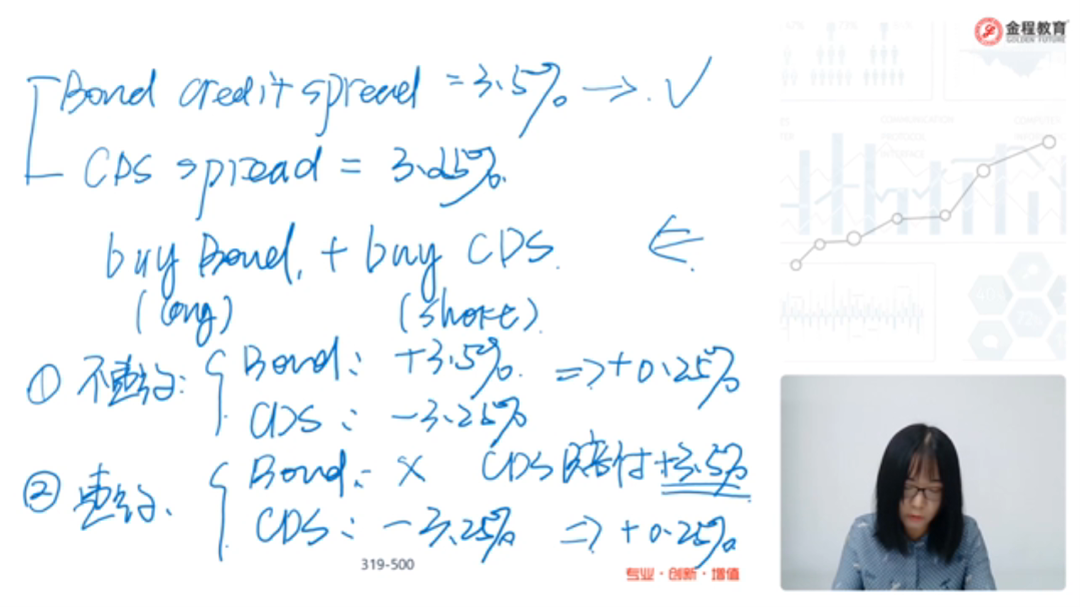 金程教育
GOLDEN FUTURE
Bond credit spread = 3.5% → ✓
CDS spread = 3.25%
buy Bond. + buy CDS. ⇐
(long) (short)
① 不违约: { Bond: +3.5% ⇒ +0.25%
CDS: -3.25%
② 违约. { Bond: × CDS赔付+3.5%
CDS: -3.25% ⇒ +0.25%
319-500
专业·创新·增值